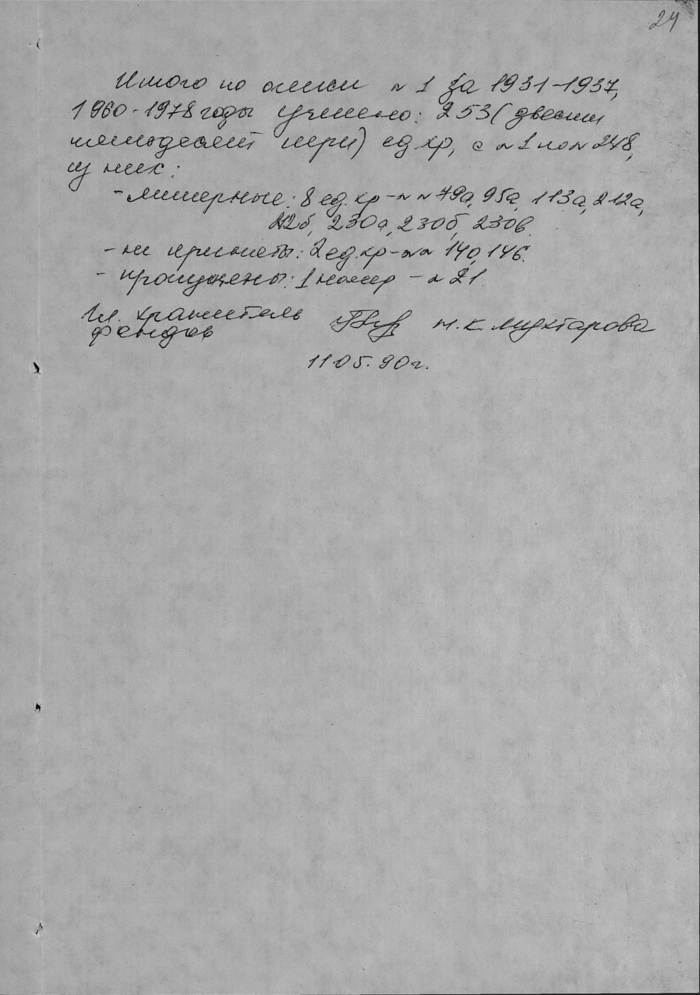 24
Итого по описи № 1 за 1931-1937,
1960-1978 годы учтено: 253 (двести
пятьдесят три) ед. хр, с №1 по №248,
из них:
- литерные: 8 ед. хр - №№ 79а, 95а, 113а, 212а,
212б, 230а, 230б, 230в.
- не приняты: 2 ед. хр - №№ 140, 146.
- пропущены: 1 номер - №21.
Гл. хранитель
фондов М. К. Мухтарова
11.05.90г.